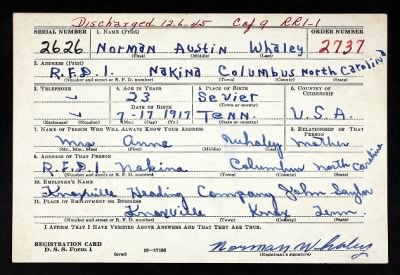 Discharged 12-6-45 Cof9 RR1-1
SERIAL NUMBER 1. NAME (Print) ORDER NUMBER
2626 Norman Austin Whaley 2737
(First) (Middle) (Last)
2. ADDRESS (Print)
R.F.D.1. Nakina Columbus North Carolina
(Number and street or R. F. D. number) (Town) (County) (State)
3. TELEPHONE 4. AGE IN YEARS 5. PLACE OF BIRTH 6. COUNTRY OF CITIZENSHIP
23 Sevier
DATE OF BIRTH (Town or county)
7-17 1917 Tenn. U.S.A.
(Exchange) (Number) (Mo.) (Day) (Yr.) (State or country)
7. NAME OF PERSON WHO WILL ALWAYS KNOW YOUR ADDRESS 8. RELATIONSHIP OF THAT PERSON
Mrs Anna Whaley Mother
(Mr., Mrs., Miss) (First) (Middle) (Last)
9. ADDRESS OF THAT PERSON
R.F.D.1 Nakina Columbus North Carolina
(Number and street or R. F. D. number) (Town) (County) (State)
10. EMPLOYER'S NAME
Knoxville Heading Company John Saylor
11. PLACE OF EMPLOYMENT OR BUSINESS
Knoxville Knox Tenn
(Number and street or R. F. D. number) (Town) (County) (State)
I AFFIRM THAT I HAVE VERIFIED ABOVE ANSWERS AND THAT THEY ARE TRUE.
REGISTRATION CARD
D. S. S. Form 1 (over) Norman Whaley
(Registrant's signature)